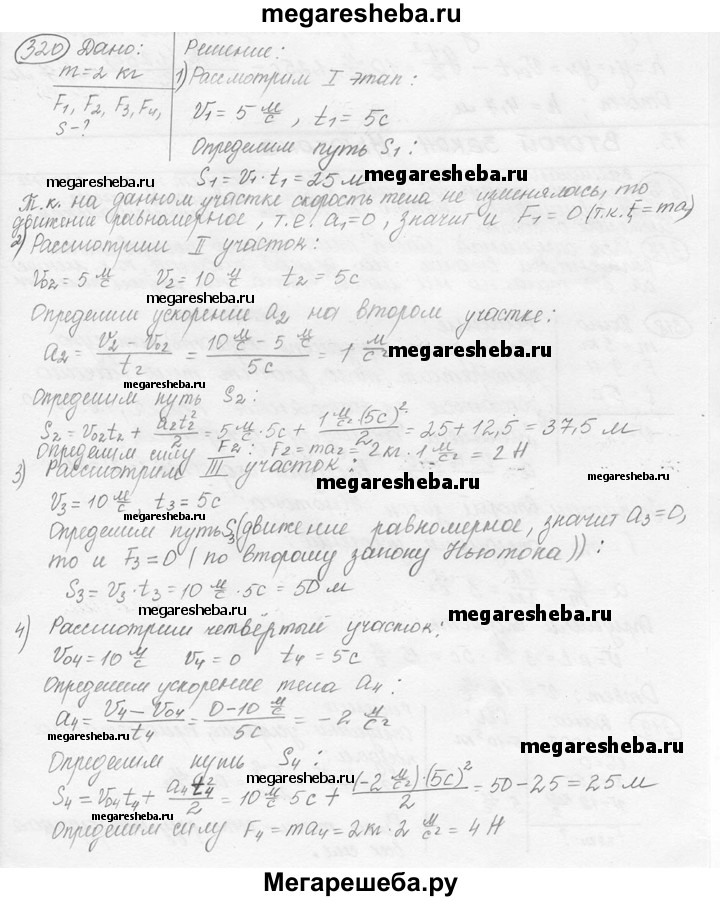 megaresheba.ru
320 Дано:
m=2 кг
F₁, F₂, F₃, F₄,
S-?
Решение:
1) Рассмотрим I этап:
V₁ = 5 м/с, t₁ = 5с
Определим путь S₁:
S₁ = V₁·t₁ = 25 м
megaresheba.ru
megaresheba.ru
Т.к. на данном участке скорость тела не изменялась, то
движение равномерное, т.е. a₁=0, значит и F₁ = 0 (т.к. F=ma)
2) Рассмотрим II участок:
V₀₂ = 5 м/с V₂ = 10 м/с t₂ = 5с
megaresheba.ru
Определим ускорение a₂ на втором участке:
a₂ = (V₂ – V₀₂)/t₂ = (10 м/с – 5 м/с)/5с = 1 м/с²
megaresheba.ru
megaresheba.ru
Определим путь S₂:
S₂ = V₀₂t₂ + a₂t₂²/2 = 5 м/с · 5с + 1 м/с² (5с)²/2 = 25 + 12,5 = 37,5 м
Определим силу F₂: F₂ = ma₂ = 2кг · 1 м/с² = 2 Н
3) Рассмотрим III участок:
megaresheba.ru
megaresheba.ru
V₃ = 10 м/с t₃ = 5с
megaresheba.ru
Определим путь S₃ (движение равномерное, значит a₃ = 0,
то и F₃ = 0 (по второму закону Ньютона)):
S₃ = V₃·t₃ = 10 м/с · 5с = 50 м
megaresheba.ru
megaresheba.ru
4) Рассмотрим четвёртый участок:
V₀₄ = 10 м/с V₄ = 0 t₄ = 5с
Определим ускорение тела a₄:
a₄ = (V₄ – V₀₄)/t₄ = (0 – 10 м/с)/5с = – 2 м/с²
megaresheba.ru
megaresheba.ru
Определим путь S₄:
megaresheba.ru
S₄ = V₀₄t₄ + a₄t₄²/2 = 10 м/с · 5с + (–2 м/с²)·(5с)²/2 = 50 – 25 = 25 м
Определим силу F₄ = ma₄ = 2кг · 2 м/с² = 4 Н
megaresheba.ru
Мегарешеба.ру